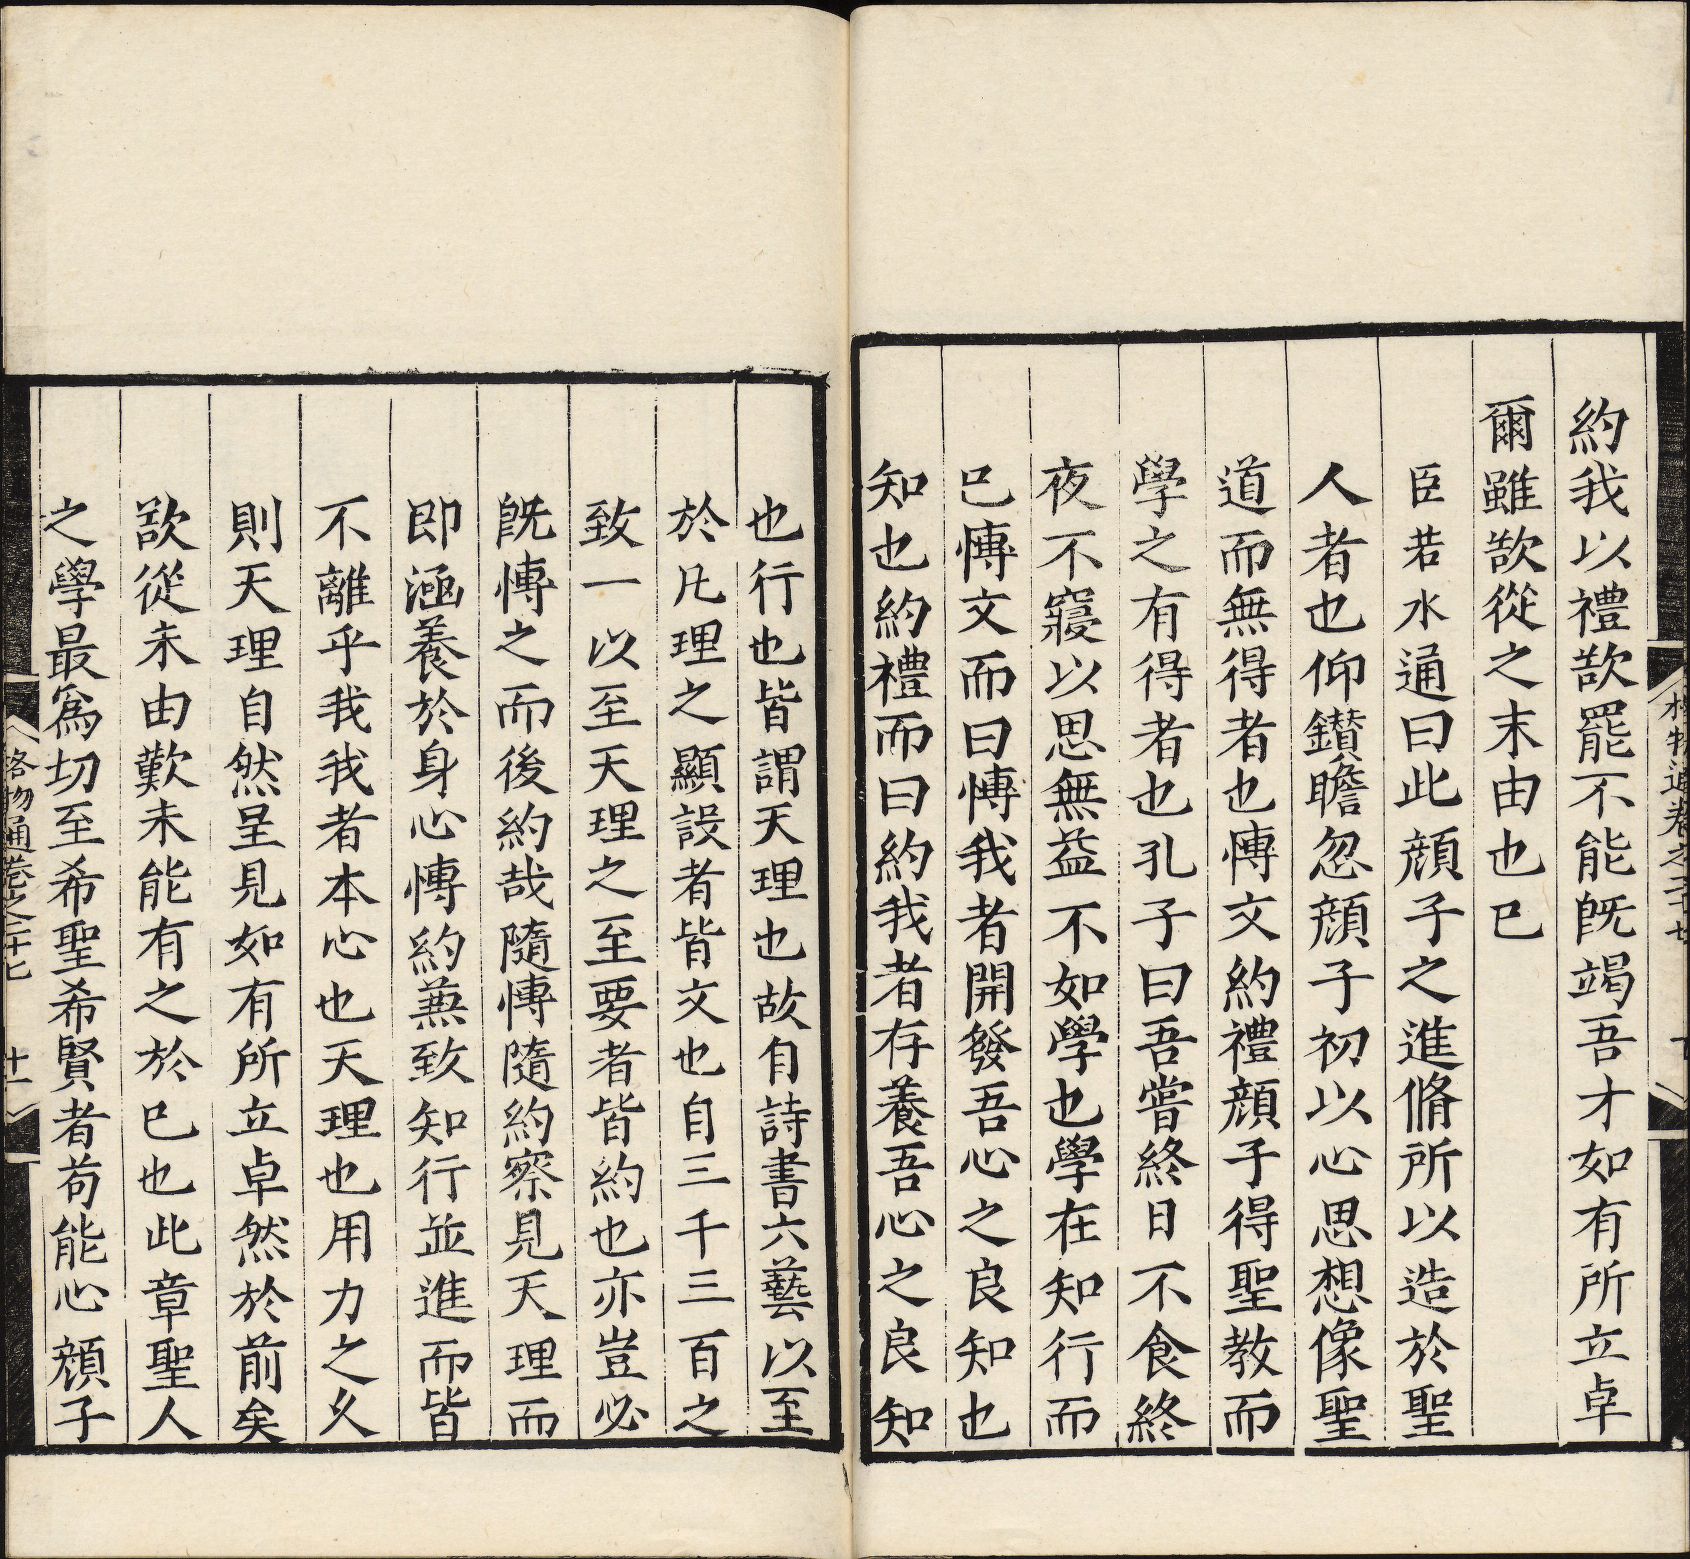 約我以禮欲罷不能旣竭吾才如有所立卓
爾雖欲從之末由也已
臣若水通曰此顔子之進脩所以造於聖
人者也仰鑚瞻忽顔子初以心思想像聖
道而無得者也慱文約禮顔子得聖教而
學之有得者也孔子曰吾嘗終日不食終
夜不寢以思無益不如學也學在知行而
已慱文而曰慱我者開發吾心之良知也
知也約禮而曰約我者存養吾心之良知
也行也皆謂天理也故自詩書六藝以至
於凡理之顯設者皆文也自三千三百之
致一以至天理之至要者皆約也亦豈必
旣慱之而後約哉隨慱隨約察見天理而
即涵養於身心慱約兼致知行並進而皆
不離乎我我者本心也天理也用力之久
則天理自然呈見如有所立卓然於前矣
欲從未由歎未能有之於已也此章聖人
之學最爲切至希聖希賢者苟能心顔子
格物通卷之二十七
十一